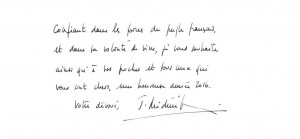 Confiant dans la force du peuple français,
et dans sa volonté de vivre, je vous souhaite,
ainsi qu'à vos proches et tous ceux qui
vous sont chers, une heureuse année 2016.
Votre dévoué,